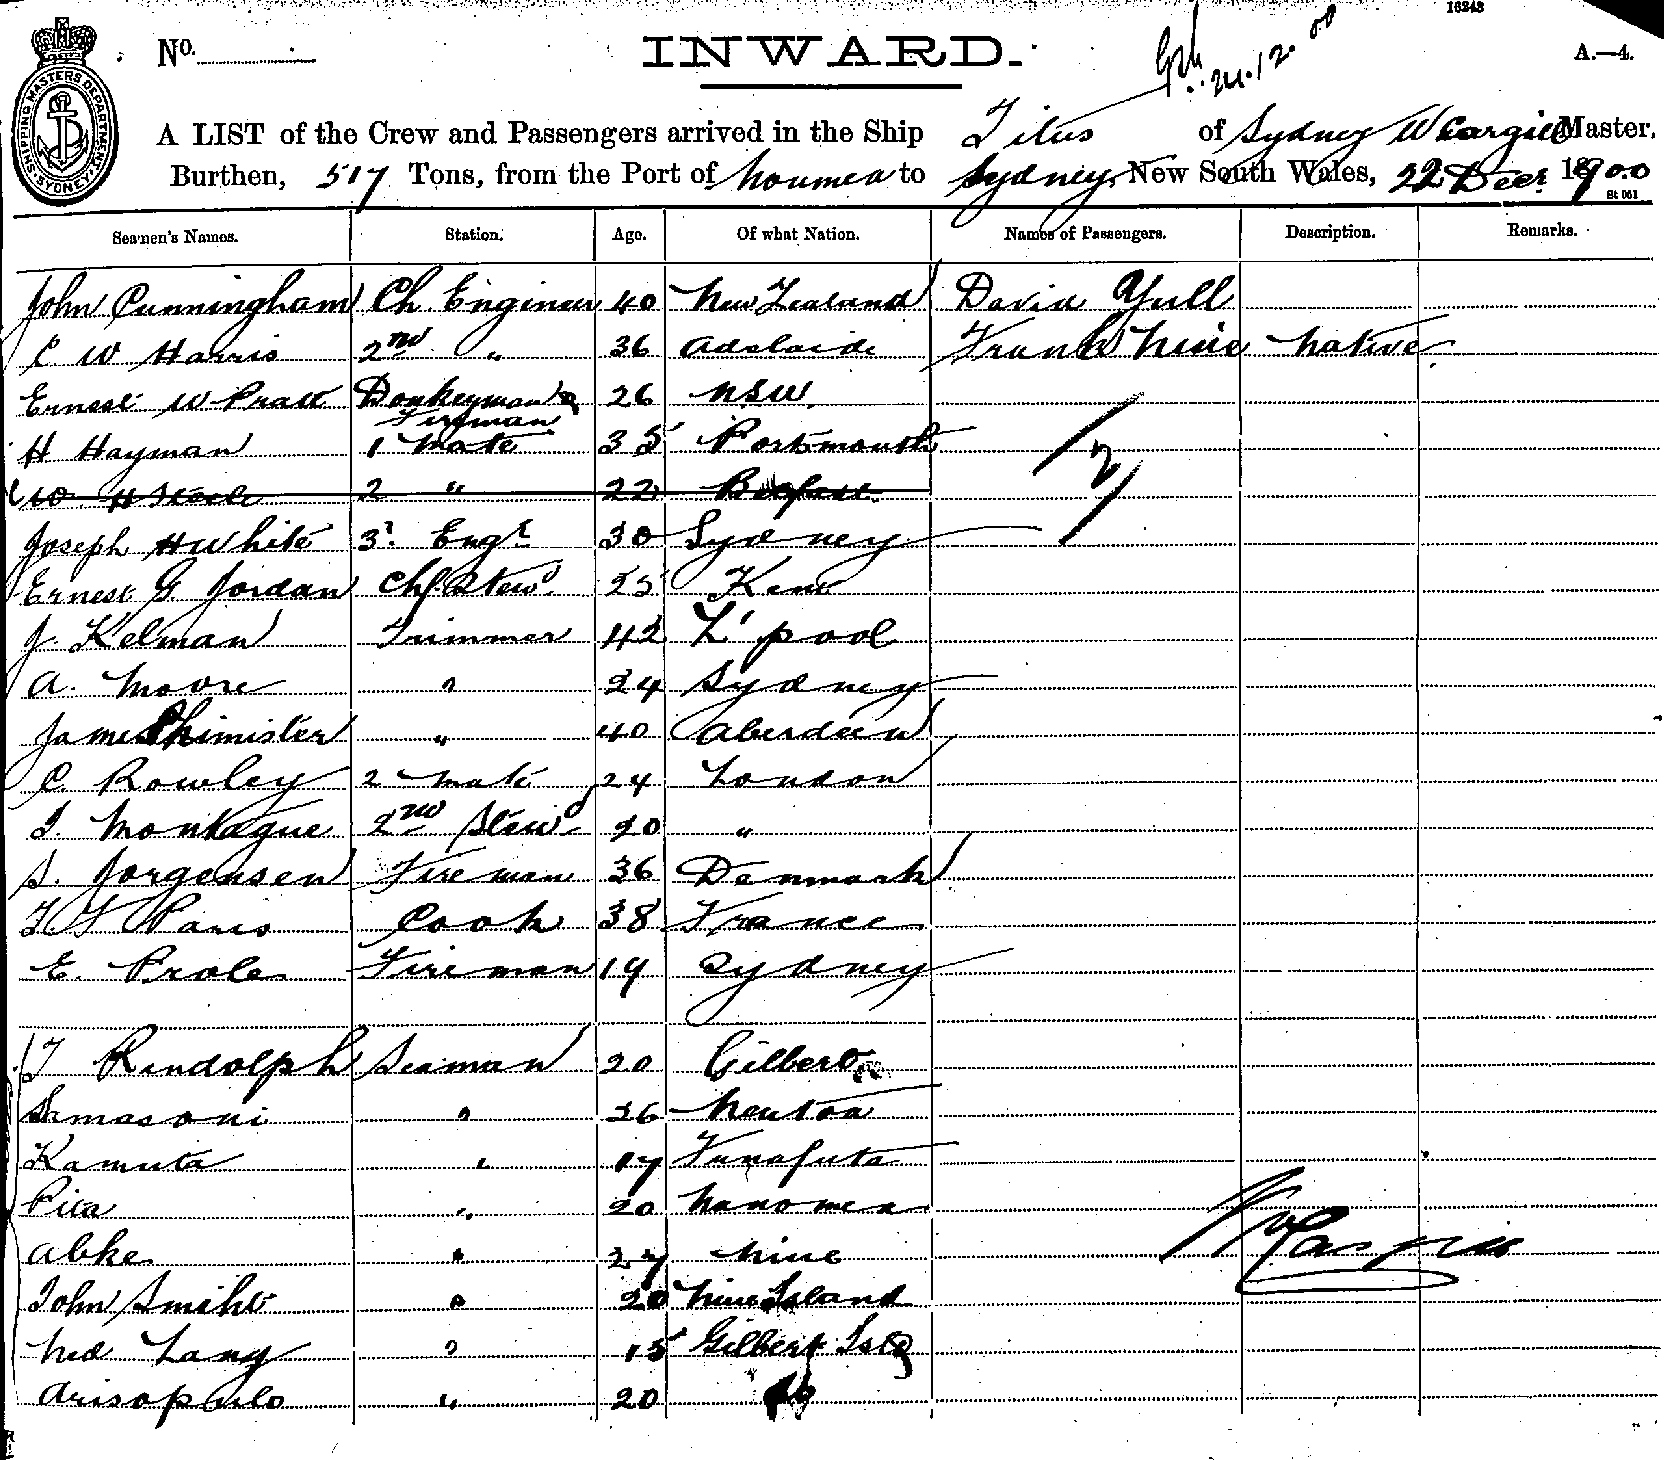 16243
No.
INWARD.
24.12.00
A.—4.
SHIPPING MASTERS DEPARTMENT SYDNEY
A LIST of the Crew and Passengers arrived in the Ship Titus of Sydney W Cargill Master,
Burthen, 517 Tons, from the Port of Noumea to Sydney, New South Wales, 22 Decr. 1900
St 051
Seamen's Names. Station. Age. Of what Nation. Names of Passengers. Description. Remarks.
John Cunningham Ch. Engineer 40 New Zealand David Yull
C W Harris 2nd " 36 Adelaide Frank Niue Native
Ernest W Pratt Donkeyman & Fireman 26 N.S.W.
H Hayman 1 Mate 35 Portsmouth
W H Steele 2 " 22 Belfast
2
Joseph H White 3r. Engr. 30 Sydney
Ernest G. Jordan Chf. Stewd 25 Kent
J. Kelman Trimmer 42 L'pool
A. Moore " 24 Sydney
James Shimister " 40 Aberdeen
C. Rowley 2 Mate 24 London
I. Montague 2nd Stewd 20 "
S. Jorgensen Fireman 36 Denmark
Paris Cook 38 France
E. Prole Fireman 19 Sydney
T Rudolph Seaman 20 Gilbert
Samasoni " 26
Kamuta " 17 Funafuta
Pita " 20 Nanomea
Abke " 27 Niue
John Smith " 20 Niue Island
W Cargill
Ned Lang " 15 Gilbert Isld
Arisopaulo " 20